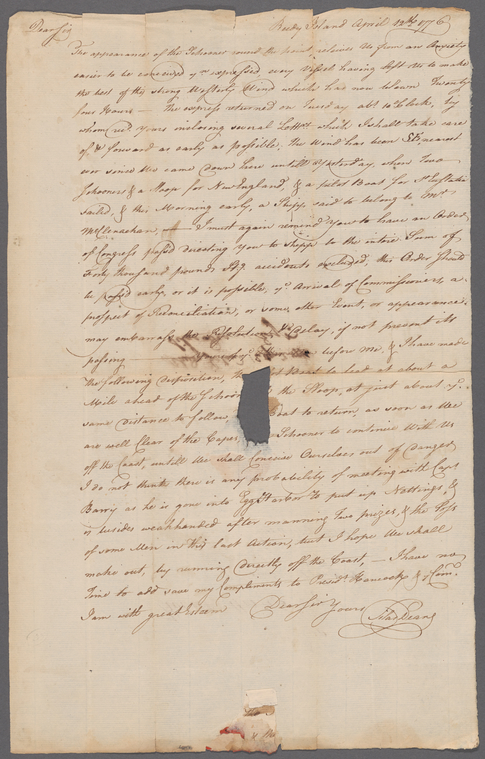 Dear Sir Reedy Island April 12th 1776
The appearance of the Schooner round the point, relieves Us from an Anxiety
easier to be conceived yn expressed every Vessel having left Us to make
the best of this strong Westerly Wind which has now blown Twenty
four Hours — The express returned on Tuesday abt 10 oClock, by
whom recd Yours inclosing several Letters which I shall take care
of & forward as early as possible, the Wind has been Et nearest
ever since We came down here untill Yesterday, when Two
Schooners & a Sloop for New England, & a pilot Boat for St
Sailed, & this Morning early, a Shipp said to belong to Mr
— I must again remind You to have an Order
of Congress passd directing You to Shipp to the intire Sum of
Forty thousand pounds Stg. accidents excluded, this Order should
be passd early, or it is possible, ye Arrival of Commissioners, a
prospect of Reconciliation, or some, other Event, or appearance,
may embarrass the Resolution, & Delay, if not prevent its
passing — before me, & I have made
the following disposition, the Boat to lead at about a
Mile ahead of the Schooner the Sloop, at just about ye
same distance to follow Boat to return, as soon as We
are well Clear of the Capes, Schooner to continue With Us
off the Coast, untill We shall Conceive Ourselves out of danger
I do not think there is any probability of meeting with Capt
Barry as he is gone into Egg Harbor to put up Nettings, &
is besides weakhanded after manning Two prizes, & the loss
of some Men in this last Action, but I hope We shall
make out, by running directly off the Coast, — I have no
Time to add save my Compliments to Presidt Hancock & ye Comee.
I am with great Esteem Dear Sir Yours
Silas Deane